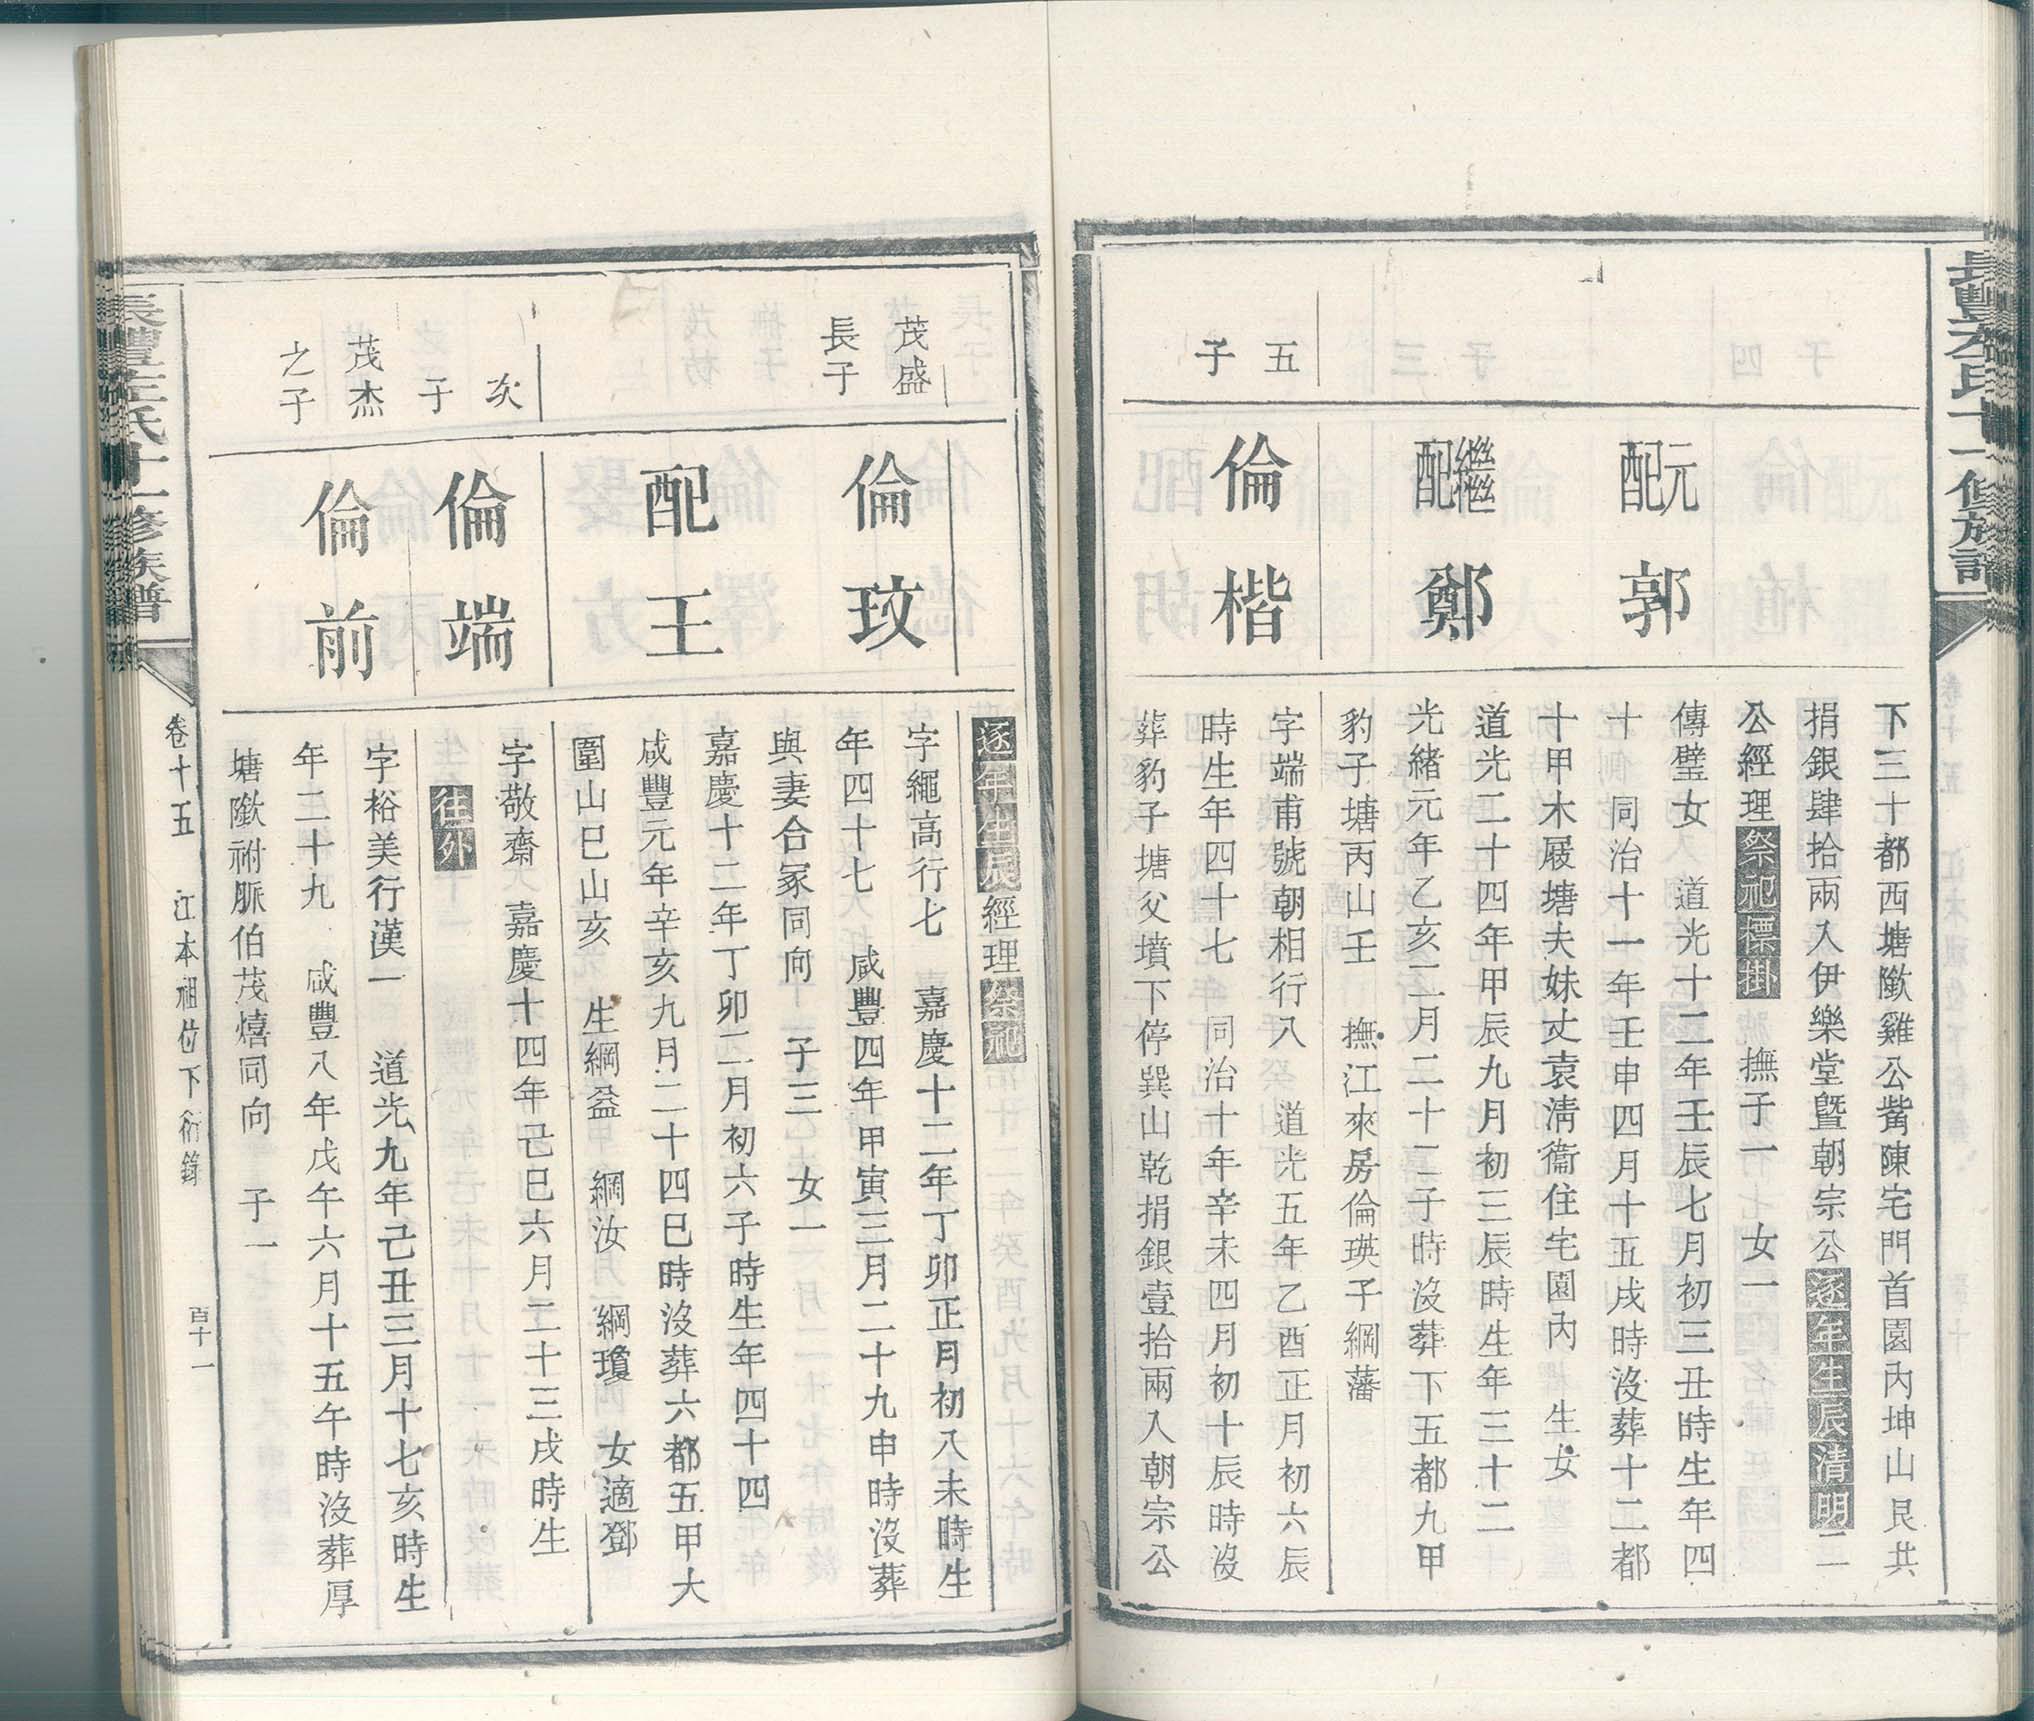 長豐左氏十一修族譜
元配郭
下三十都西塘隞雞公觜陳宅門首園內坤山艮共
捐銀肆拾兩入伊樂堂暨朝宗公逐年生辰清明二
公經理祭祀標掛 撫子一 女一
繼配鄭
傳璧女 道光十二年壬辰七月初三丑時生年四
十 同治十一年壬申四月十五戌時沒葬十二都
十甲木屐塘夫妹丈袁淸衞住宅園內 生女一
道光二十四年甲辰九月初三辰時生年三十二
光緒元年乙亥二月二十二子時沒葬下五都九甲
豹子塘丙山壬 撫江來房倫瑛子綱藩
五子
倫楷
字端甫號朝相行八 道光五年乙酉正月初六辰
時生年四十七 同治十年辛未四月初十辰時沒
葬豹子塘父墳下停巽山乾捐銀壹拾兩入朝宗公
逐年生辰經理祭祀
茂盛長子
倫玟
字繩高行七 嘉慶十二年丁卯正月初八未時生
年四十七 咸豐四年甲寅三月二十九申時沒葬
與妻合冢同向 子三 女一
配王
嘉慶十二年丁卯二月初六子時生年四十四
咸豐元年辛亥九月二十四巳時沒葬六都五甲大
圍山巳山亥 生綱益 綱汝 綱瓊 女適鄧
次子
倫端
字敬齋 嘉慶十四年己巳六月二十三戌時生
往外
茂杰之子
倫前
字裕美行漢一 道光九年己丑三月十七亥時生
年二十九 咸豐八年戊午六月十五午時沒葬厚
塘隞祔脈伯茂熺同向 子一
長豐左氏十一修族譜
卷十五 江本祖位下衍錄 百十一